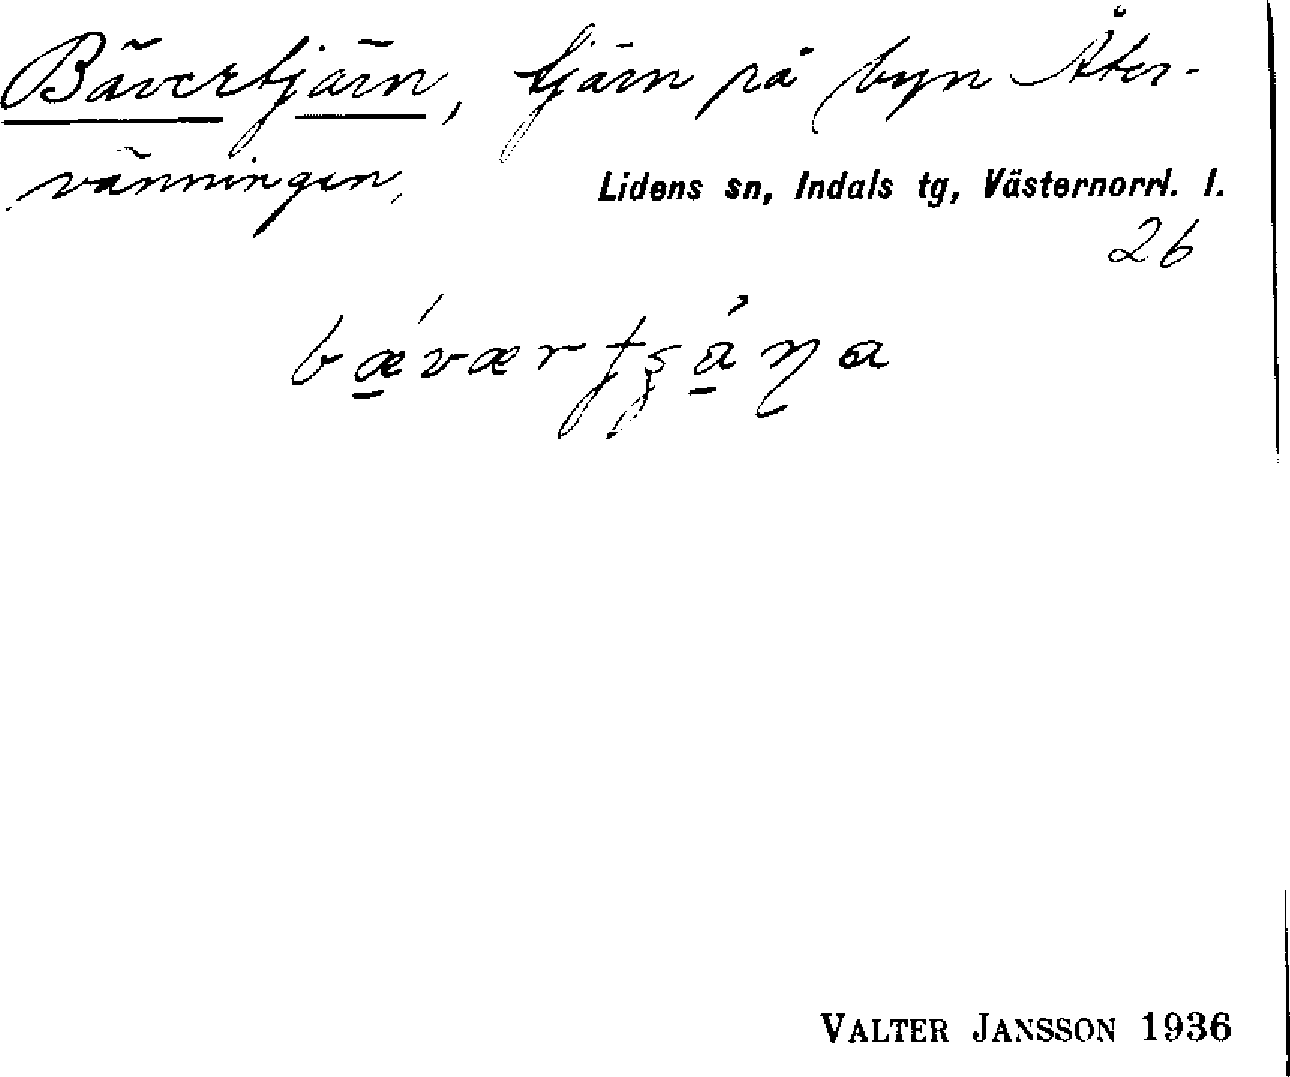 Bävertjärn, tjärn på byn Åter-
vänningen.
Lidens sn, Indals tg, Västernorrl. l.
26
VALTER JANSSON 1936